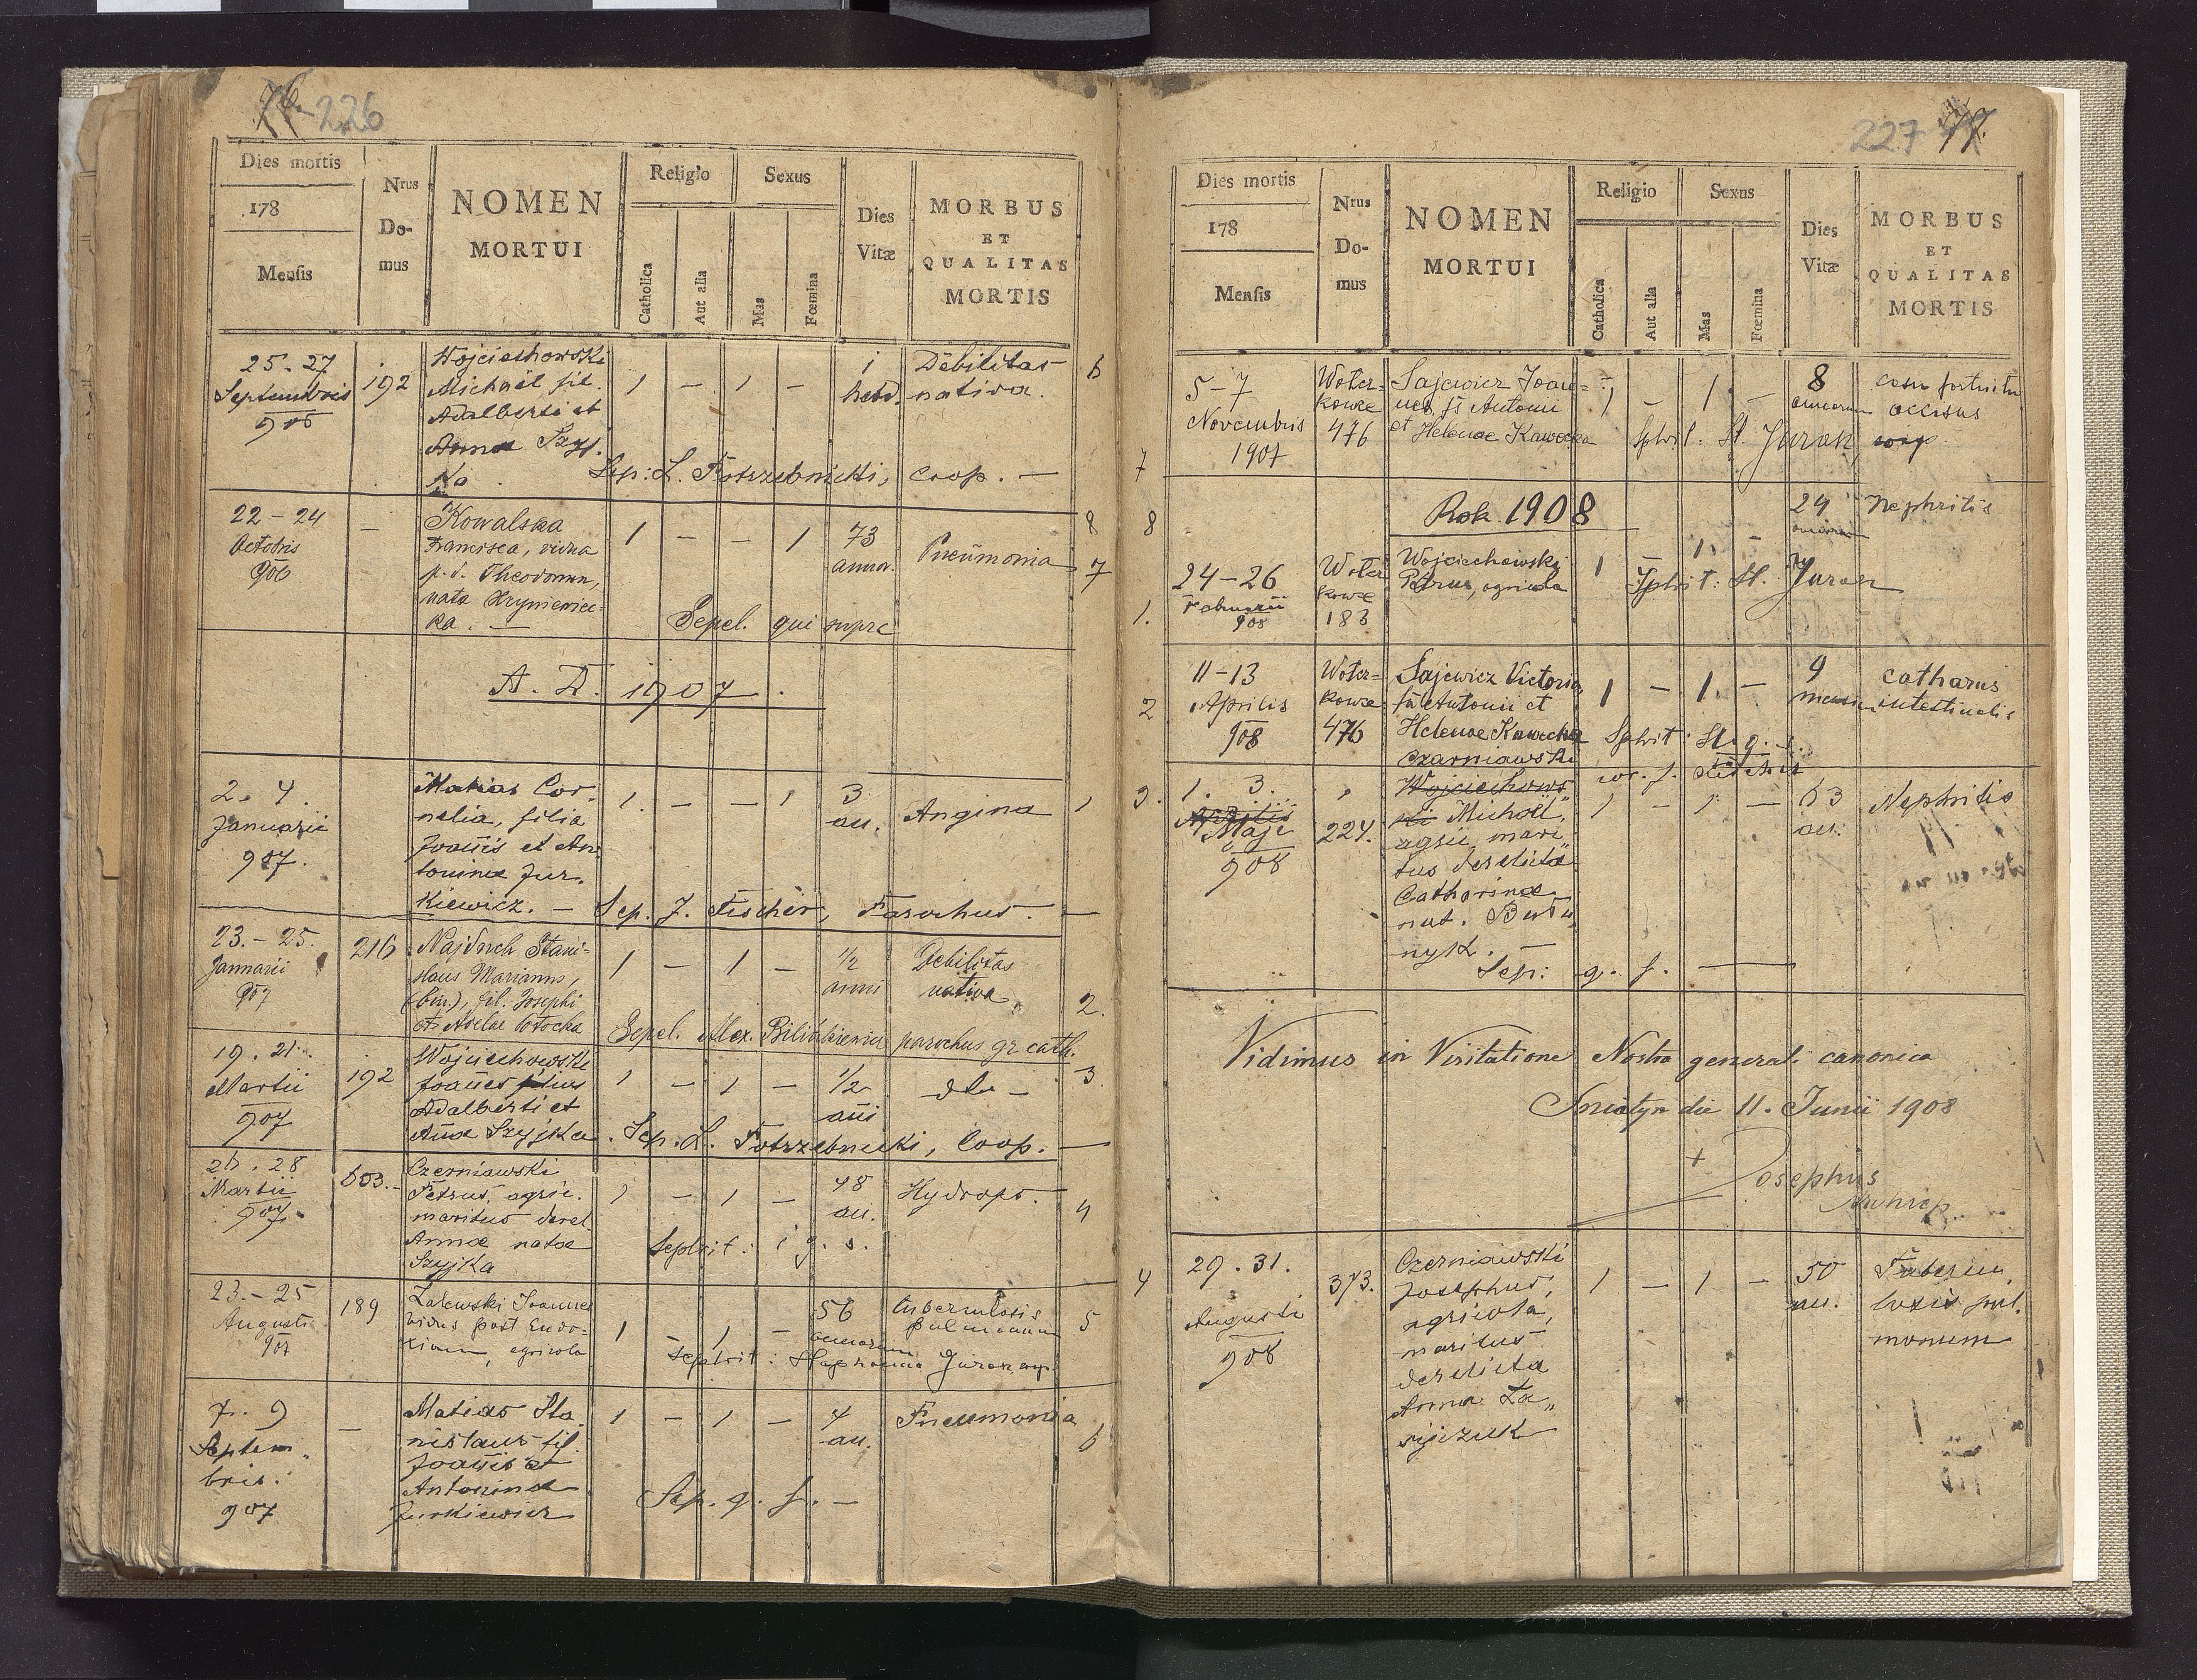 76.-226
Dies mortis
178
Mensis
Nrus
Do-
mus
NOMEN
MORTUI
Religio
Catholica
Aut alia
Sexus
Mas
Fœmina
Dies
Vitæ
MORBUS
ET
QUALITAS
MORTIS
25.-27
Septembris
906
192
Wojciechowski
Michaël fil.
Adalberti et
Annæ Szyj-
ka
1 - 1 -
1
hebd.
Debilitas
nativa.
6
Sep: L. Potrzebnicki, coop. —
22-24
Octobris
906
-
Kowalska
Francisca, vidua
p. d. Theodorum,
nata Hryniewiec=
ka. —
1 - - 1
73
annor.
Pneumonia
8
7
Sepel. qui supra
A. D. 1907.
2. 4.
Januarii
907.
Matias Cor-
nelia, filia
Joañis et An-
toninæ Jur-
kiewicz. —
1. - - 1
3
an.
Angina
1
Sep. J. Fischer, Parochus. —
23.-25.
Januarii
907
216
Najduch Stani-
slaus Marianus,
(bin.), fil. Josephi
et Adelae Potocka
1 - 1 -
1/2
anni
Debilitas
nativa
2.
Sepel. Alex. parochus gr. cath.
19. 21.
Martii
907
192
Wojciechowski
Joañes filius
Adalberti et
Añæ Szyjka.
1 - 1 -
1/2
añi
dto -
3
Sep. L. Potrzebnicki, Coop. —
26. 28
Martii
907.
603.-
Czerniawski
Petrus, agric.
maritus derel.
Annæ natæ
Szyjka
1 - 1 -
48
an.
Hydrops.
4
Seplvit: q. s.
23.-25
Augusti
907
189
Zalewski Joannes
viduus post Eudo-
xiam, agricola
1 - 1 -
56
annorum
tuberculosis
pulmonum
5
Seplvit: Stephanus Juran, exp.
7. 9
Septem-
bris.
907
—
Matias Sta-
nislaus fil.
Joañis et
Antoninæ
Jurkiewicz
1 - 1 -
4
an.
Pneumonia
6
Sep. q. s. —
227 77.
Dies mortis
178
Mensis
Nrus
Do-
mus
NOMEN
MORTUI
Religio
Catholica
Aut alia
Sexus
Mas
Fœmina
Dies
Vitæ
MORBUS
ET
QUALITAS
MORTIS
7
5-7
Novembris
1907
Woter=
kowze
476
Sajewicz Joan=
nes, fs Antonii
et Helenae Kawecka
1 - 1. -
8
annorum
casu fortuitu
occisus
Splvit. St. Juran, exp.
Rok 1908
8
24-26
Februarii
908
1.
Woter
kowze
183
Wojciechowski
Petrus, agricola
1 - 1. -
29
annorum
Nephritis
Splvit: St. Juran
2
11-13
Aprilis
908
Woter=
kowze
476
Sajewicz Victoria,
fa Antonii et
Helenae Kawecka
1 - 1. -
9
mensium
catharus
intestinalis
Splvit: St. q. s.
3.
1. 3.
Aprilis
Maji
908
224.
Czarniawski
Wojciechows-
ki Michaël,
agric. mari-
tus derelictæ
Catharinæ
nat.
nyk.
1 - 1 —
63
an.
Nephritis
Sep: q. s. —
Vidimus in Visitatione Nostra generali canonica
Sniatyn die 11. Junii 1908
+ Josephus
Archiep.
4
29. 31.
Augusti
908
373.
Czerniawski
Josephus,
agricola,
maritus
derelicta
Anna La-
rijczuk
1 - 1 -
50
an.
Tubercu-
losis pul-
monum